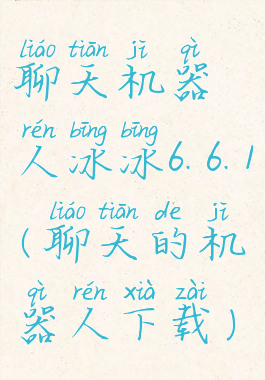 liáo tiān jī qì
聊天机器
rén bīng bīng
人冰冰6.6.1
liáo tiān de jī
(聊天的机
qì rén xià zài
器人下载)